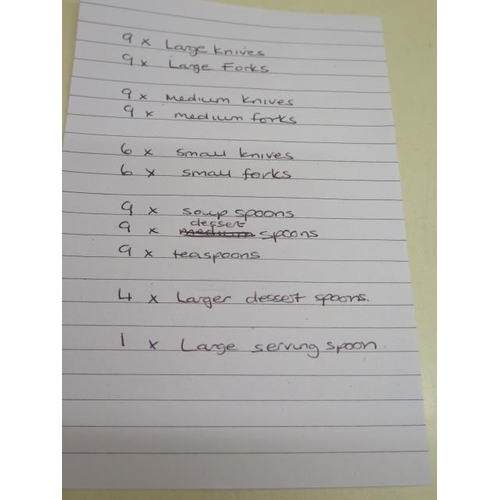 9 x Large knives
9 x Large Forks
9 x medium knives
9 x medium forks
6 x small knives
6 x small forks
9 x soup spoons
desset
9 x medium spoons
9 x teaspoons
4 x Larger desset spoons.
1 x Large serving spoon.